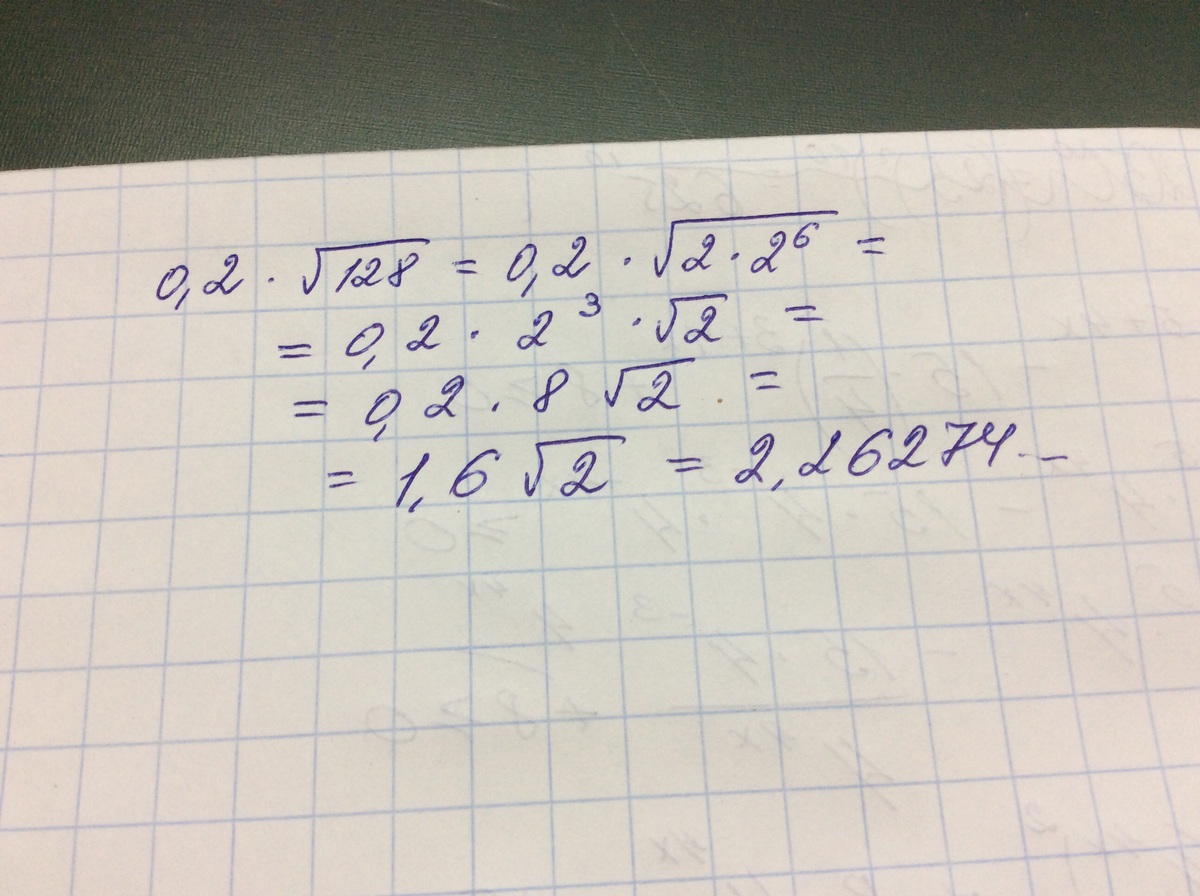 0,2 · √128 = 0,2 · √2·2⁶ =
= 0,2 · 2³ · √2 =
= 0,2 · 8 √2 =
= 1,6 √2 = 2,26274...